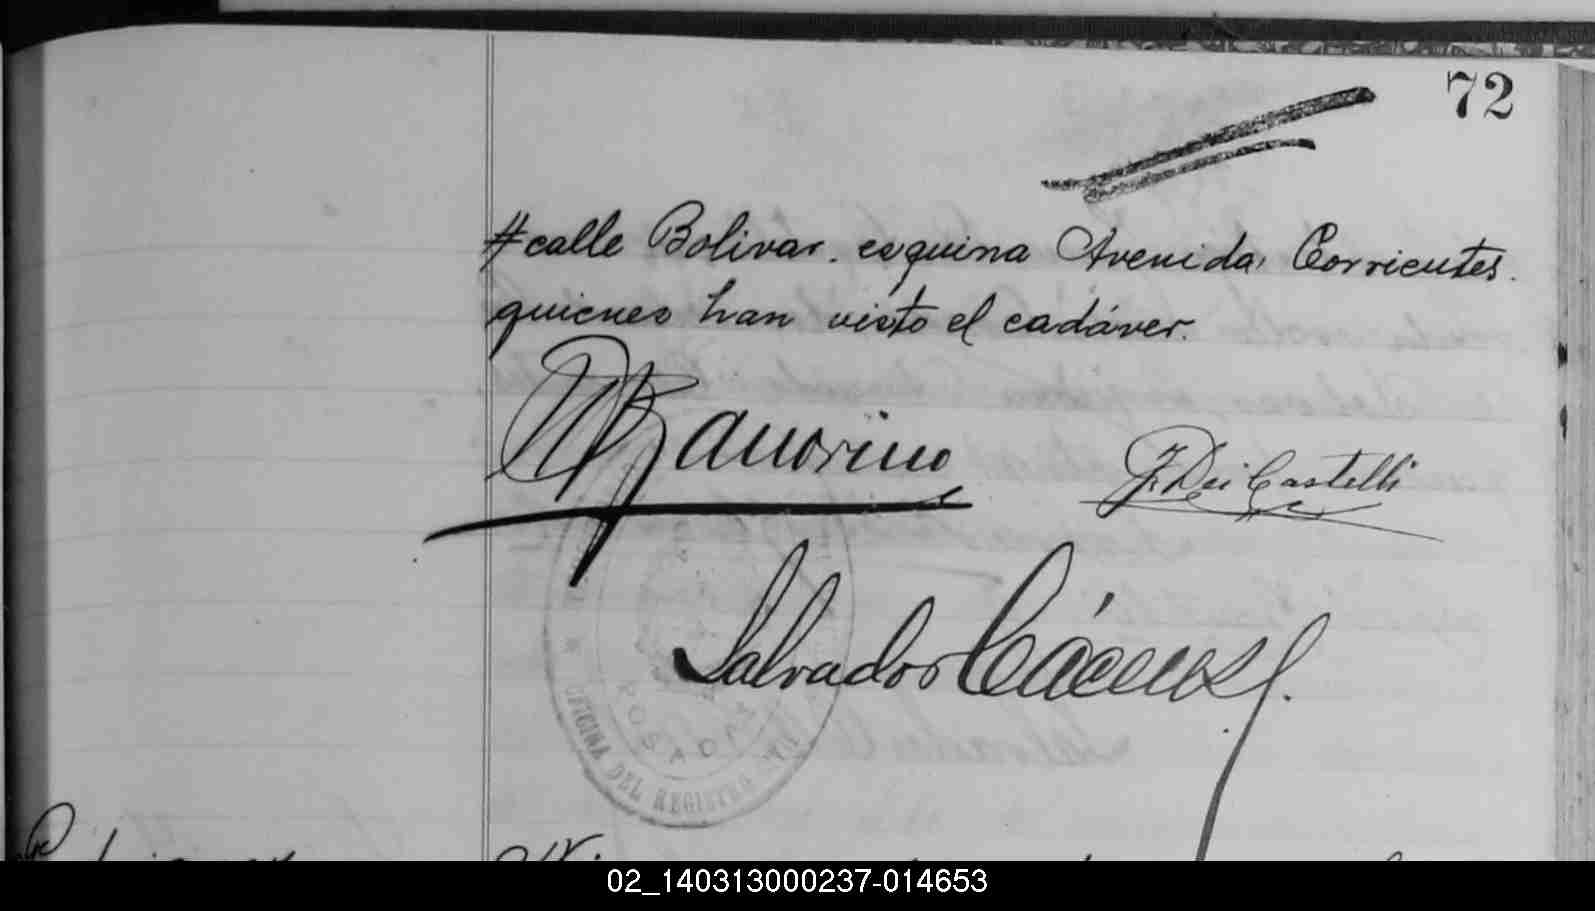 72
#calle Bolivar. esquina Avenida, Corrientes.
quienes han visto el cadáver.
J. Dei Castelli
Salvador Cáceres
POSADAS
OFICINA DEL REGISTRO
02_140313000237-014653